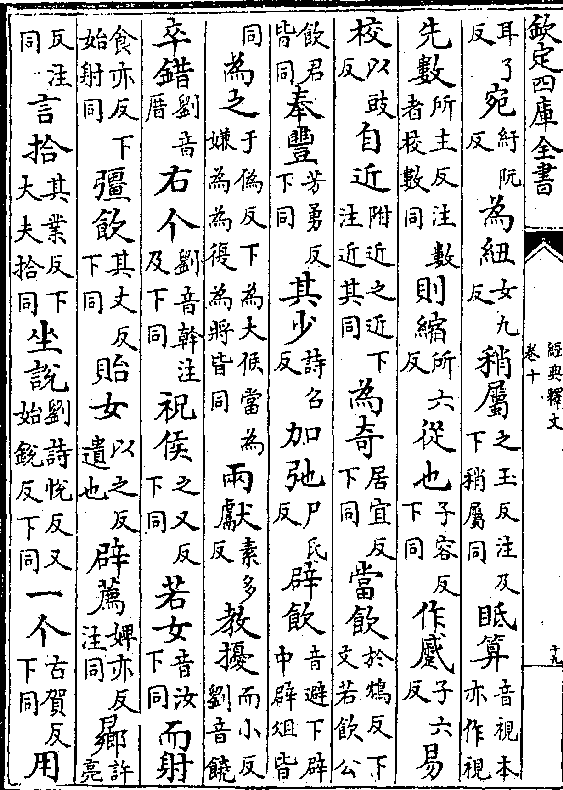 欽定四庫全書
經典釋文
卷十
十九
耳了反宛紆阮反為紐女九反稍屬之玉反注及下稍屬同眂算音視本亦作視
先數所主反注數者校數同則縮所六反從也子容反下同作蹙子六反易
校以豉反自近附近之近下注近其同為奇居宜反下同當飲於鴆反下文若飲公
飲君皆同奉豐芳勇反下同其少詩召反加弛尸氏反辟飲音避下辟中辟俎皆
同為之于偽反下為大侯當為嫌為為復為將皆同兩獻素多反教擾而小反劉音饒
卒錯劉音厝右个劉音幹注及下同祝侯之又反下同若女音汝下同而射
食亦反下始射同彊飲其丈反下同貽女以之反遺也辟薦婢亦反注同曏許亮
反注同言拾其業反下大夫拾同坐說劉詩悅反又始銳反下同一个古賀反下同用